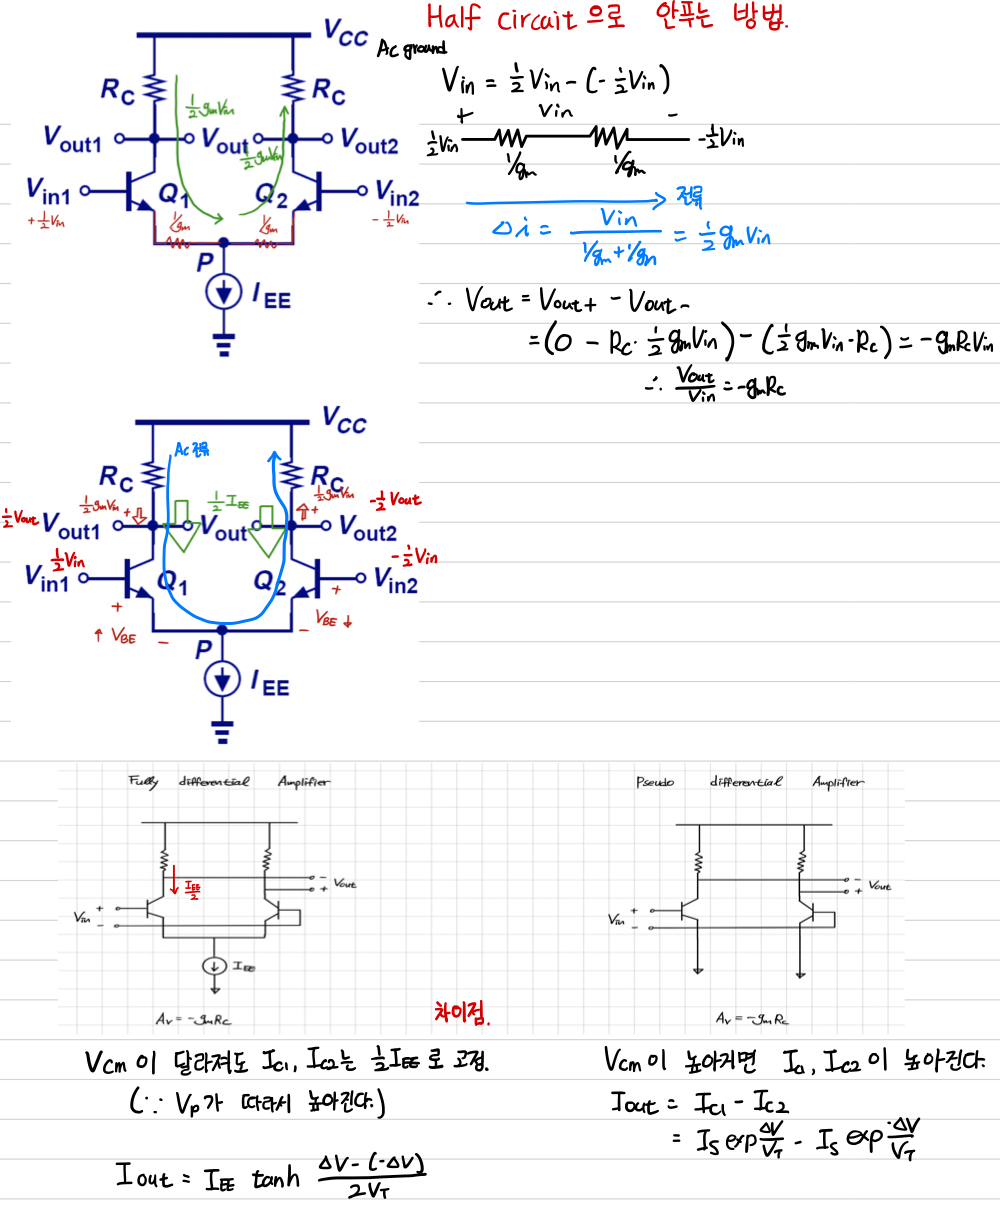 Half circuit 으로 안푸는 방법.
VCC Ac ground
RC RC
½gmVin
Vin = ½Vin - (-½Vin)
+ Vin -
½Vin -½Vin
1/gm 1/gm
Vout1 Vout Vout2
½gmVin
Vin1 Q1 Q2 Vin2
+½Vin 1/gm 1/gm -½Vin
P
IEE
전류
Δi = Vin / (1/gm + 1/gm) = ½gmVin
∴ Vout = Vout+ - Vout-
= (0 - Rc · ½gmVin) - (½gmVin · Rc) = -gmRcVin
∴ Vout/Vin = -gmRc
VCC
Ac 전류
RC RC
½gmVin + ½IEE ½gmVin + -½Vout
½Vout Vout1 Vout Vout2
½Vin -½Vin
Vin1 Q1 Q2 Vin2
+ +
↑ VBE - - VBE ↓
P
IEE
Fully differential Amplifier
IEE/2
- Vout
+
Vin +
-
IEE
Av = -gmRc
Pseudo differential Amplifier
- Vout
+
Vin +
-
Av = -gmRc
차이점.
Vcm 이 달라져도 Ic1, Ic2는 ½IEE 로 고정.
(∵ Vp가 따라서 높아진다.)
Iout = IEE tanh (ΔV - (-ΔV)) / 2VT
Vcm이 높아지면 Ic1, Ic2이 높아진다.
Iout = Ic1 - Ic2
= Is exp ΔV/VT - Is exp -ΔV/VT